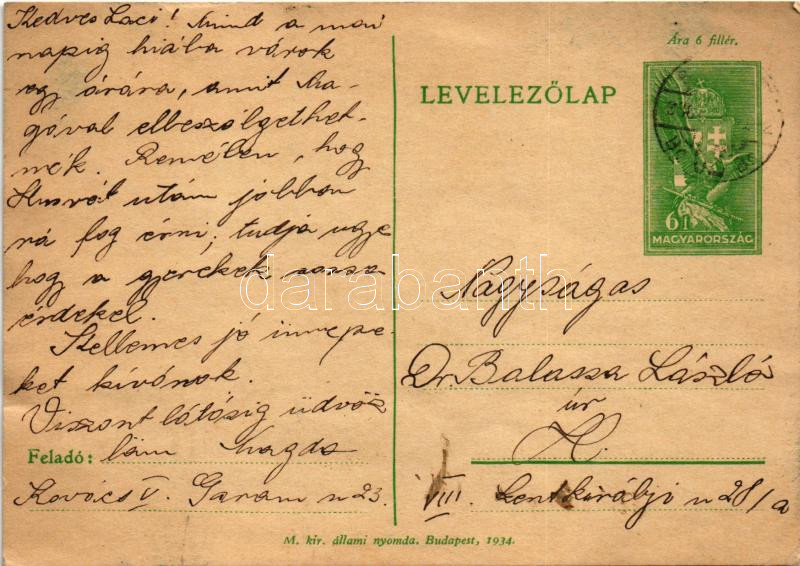 Kedves Laci! Mind a mai
napig hiába várok
egy órára, amit Ma-
gával elbeszélgethet-
nék. Remélem, hogy
Husvét után jobban
rá fog érni, tudja ugye
hogy a gyerekek sorsa
érdekel.
Kellemes jó ünnepe-
ket kívánok.
Viszont látásig üdvöz
Feladó: löm Magda
Kovács V. Garam u 23.
Ára 6 fillér.
LEVELEZŐLAP
6f
MAGYARORSZÁG
Nagyságos
Dr. Balassa László
úr
H.
VIII. Szentkirályi u 28/a
M. kir. állami nyomda. Budapest, 1934.
darabanth